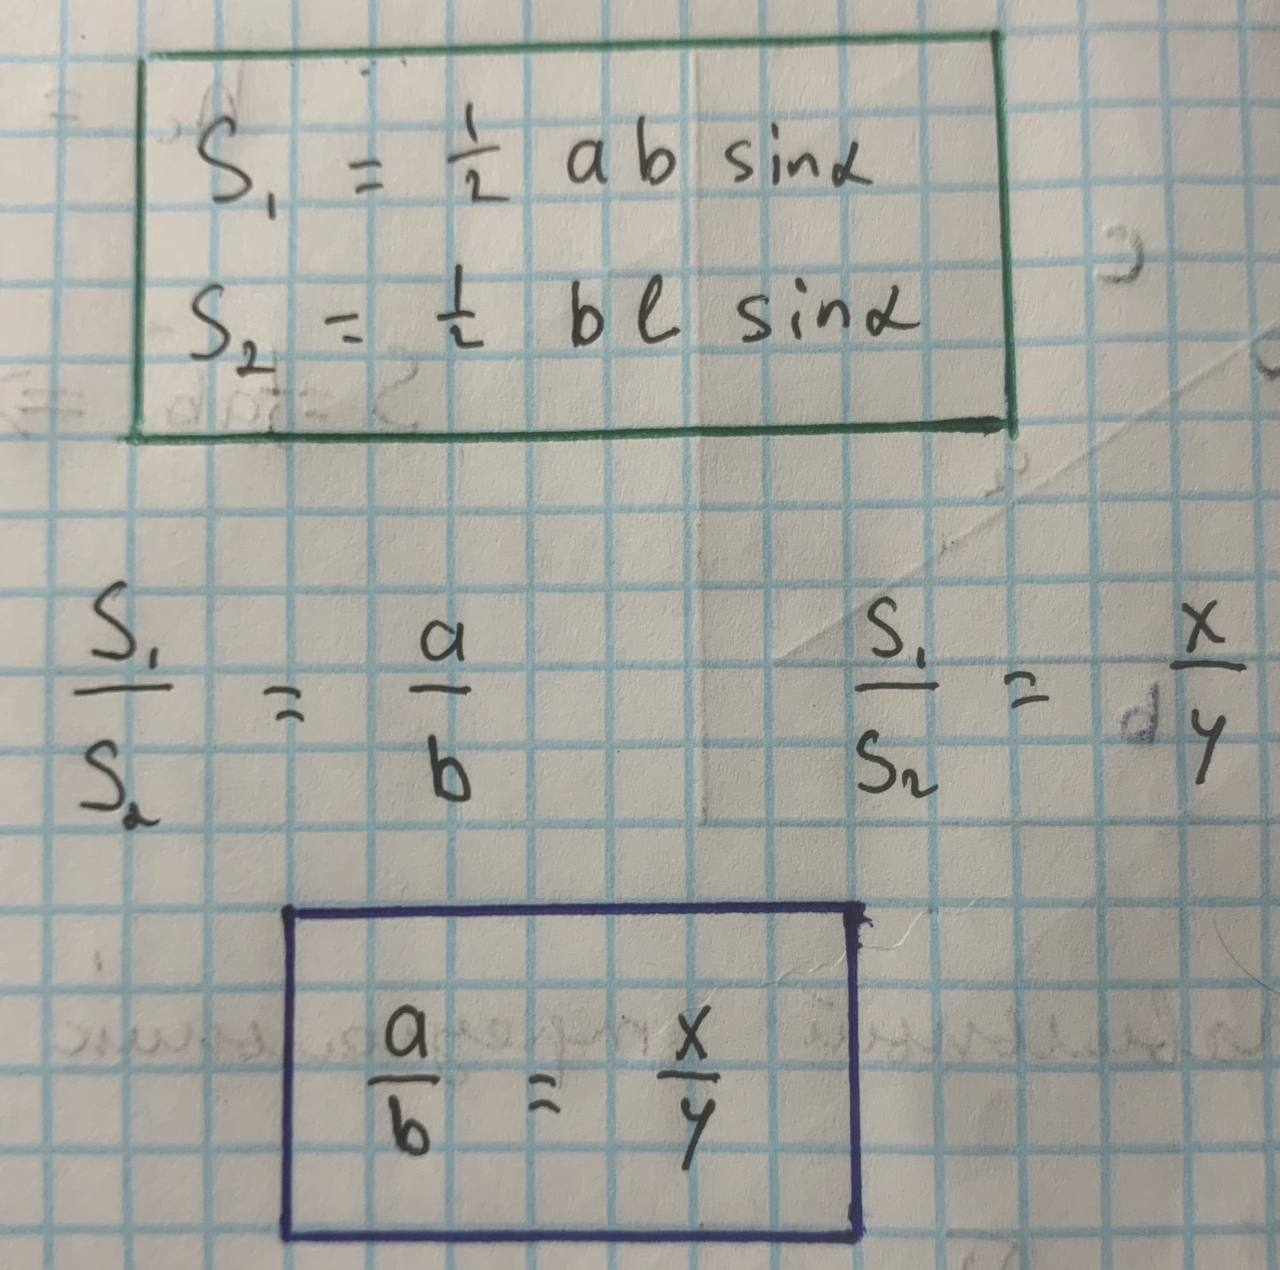 S₁ = 1/2 a b sinα
S₂ = 1/2 b l sinα
S₁/S₂ = a/b S₁/S₂ = x/y
a/b = x/y